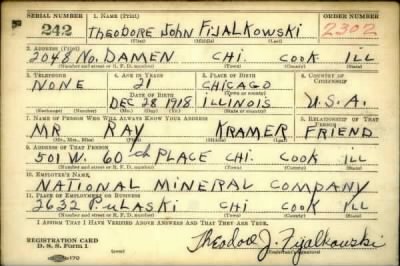 SERIAL NUMBER 1. NAME (Print) ORDER NUMBER
242 THEODORE JOHN FIJALKOWSKI 2302
(First) (Middle) (Last)
2. ADDRESS (Print)
2048 NO. DAMEN CHI COOK ILL
(Number and street or R. F. D. number) (Town) (County) (State)
3. TELEPHONE 4. AGE IN YEARS 5. PLACE OF BIRTH 6. COUNTRY OF CITIZENSHIP
NONE 21 CHICAGO
DATE OF BIRTH (Town or county)
DEC 28 1918 ILLINOIS U.S.A.
(Exchange) (Number) (Mo.) (Day) (Yr.) (State or country)
7. NAME OF PERSON WHO WILL ALWAYS KNOW YOUR ADDRESS 8. RELATIONSHIP OF THAT PERSON
MR RAY KRAMER FRIEND
(Mr., Mrs., Miss) (First) (Middle) (Last)
9. ADDRESS OF THAT PERSON
501 W. 60 th PLACE CHI. COOK ILL
(Number and street or R. F. D. number) (Town) (County) (State)
10. EMPLOYER'S NAME
NATIONAL MINERAL COMPANY
11. PLACE OF EMPLOYMENT OR BUSINESS
2632 PULASKI CHI COOK ILL
(Number and street or R. F. D. number) (Town) (County) (State)
I AFFIRM THAT I HAVE VERIFIED ABOVE ANSWERS AND THAT THEY ARE TRUE.
REGISTRATION CARD
D. S. S. Form 1
Theodore J. Fijalkowski